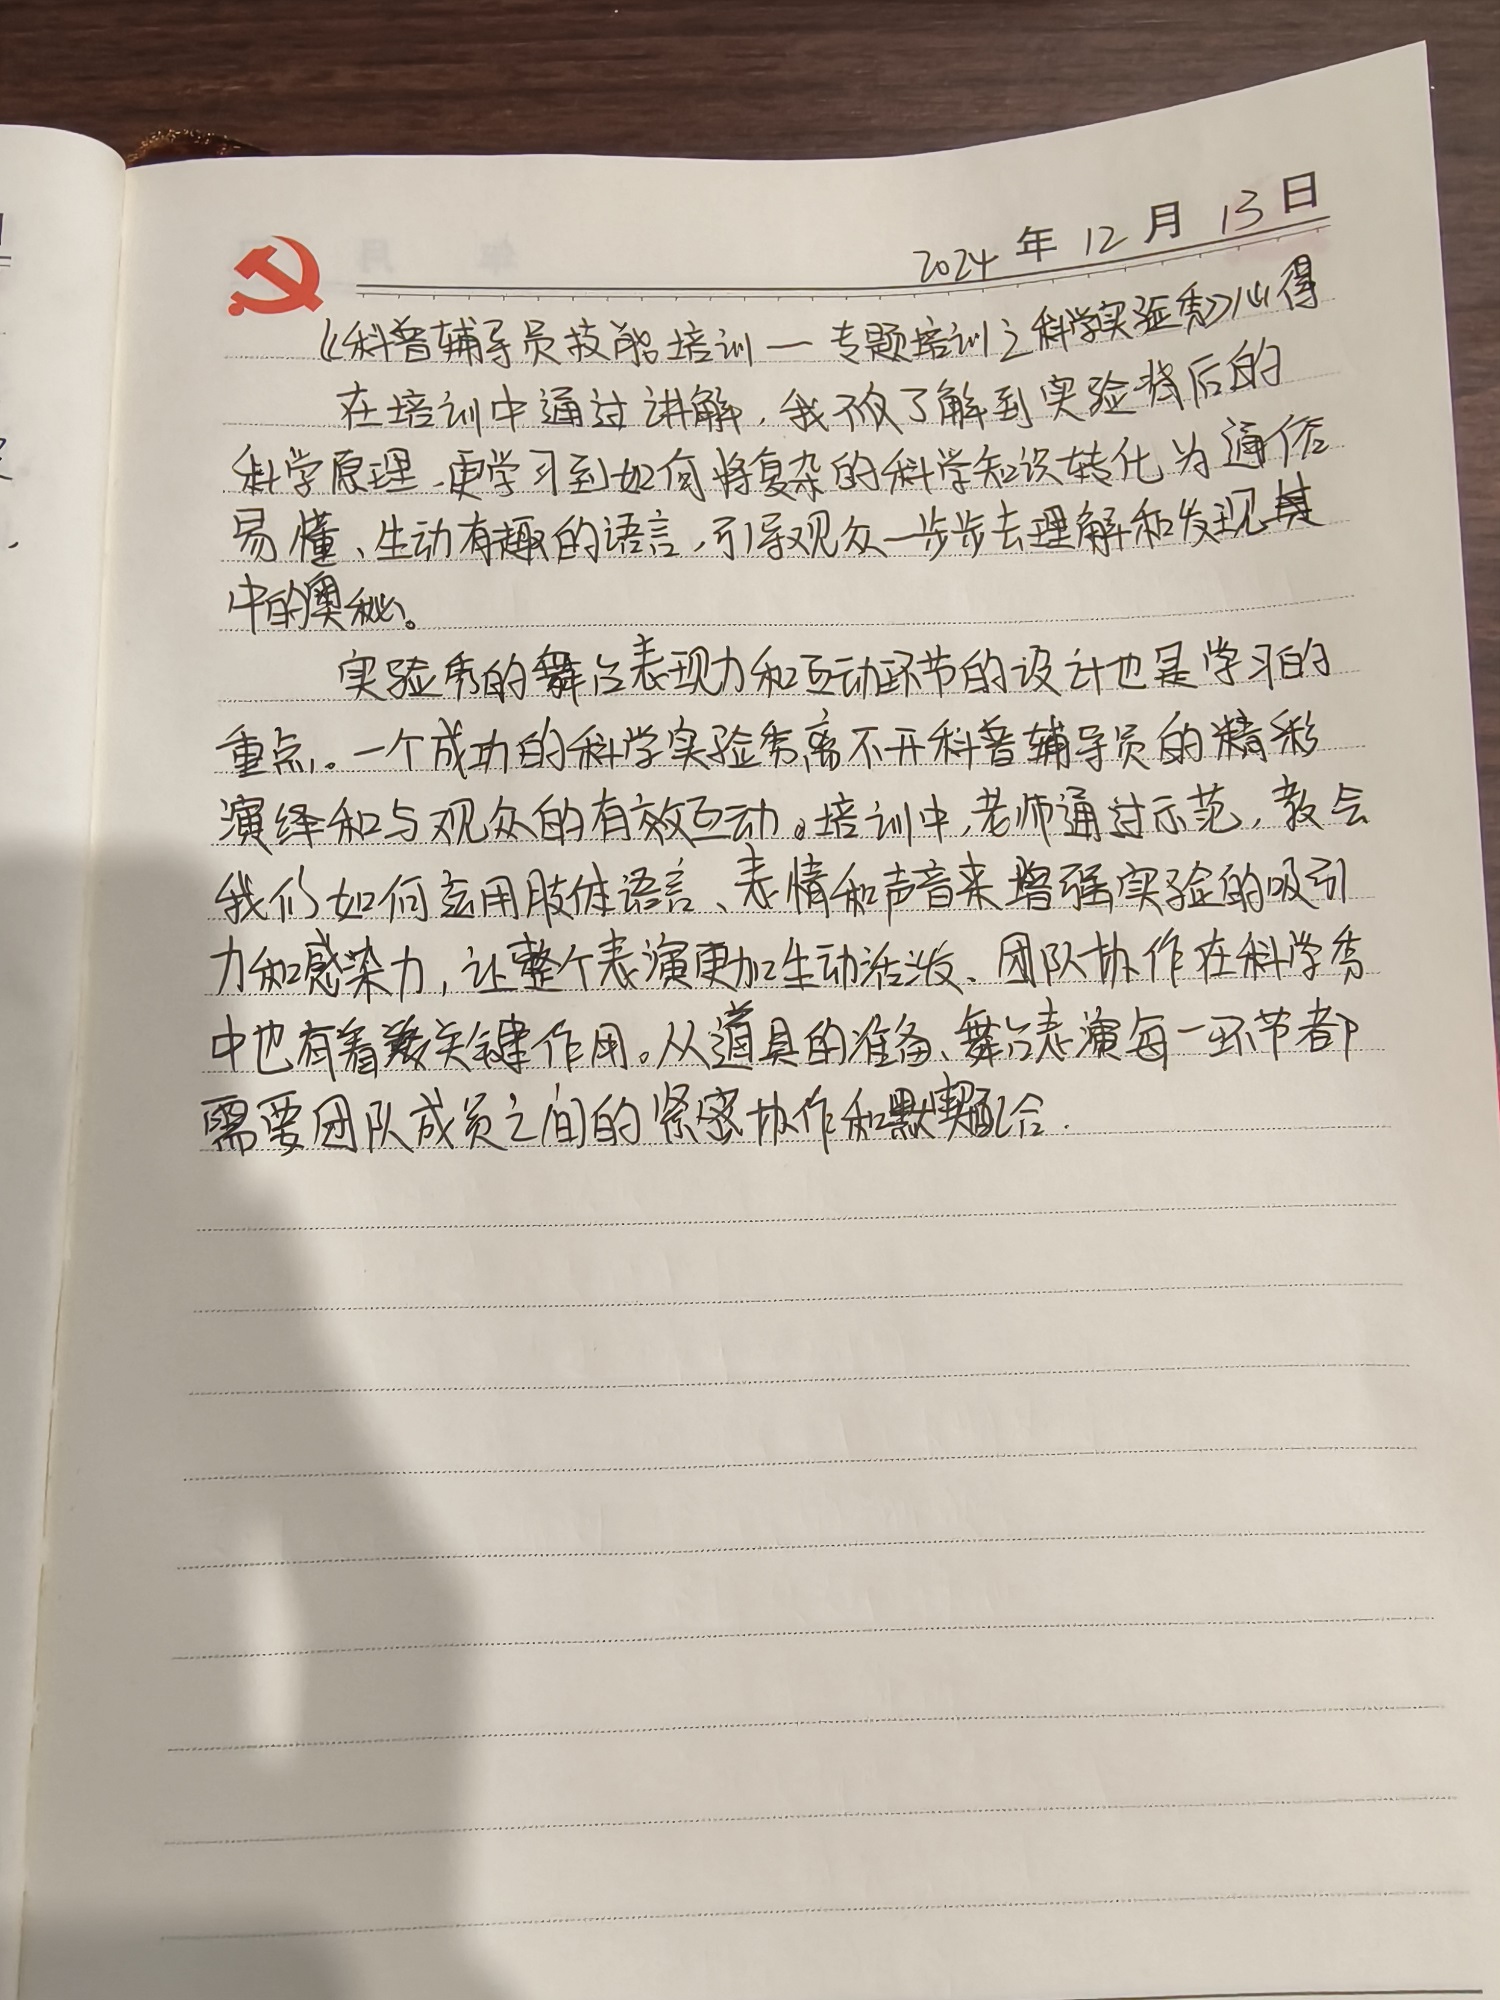 2024年12月13日
《科普辅导员技能培训一专题培训之科学实验秀》心得
在培训中通过讲解，我不仅了解到实验背后的
科学原理，更学习到如何将复杂的科学知识转化为通俗
易懂、生动有趣的语言，引导观众一步步去理解和发现其
中的奥秘。
实验秀的舞台表现力和互动环节的设计也是学习的
重点。一个成功的科学实验秀离不开科普辅导员的精彩
演绎和与观众的有效互动。培训中，老师通过示范，教会
我们如何运用肢体语言、表情和声音来增强实验的吸引
力和感染力，让整个表演更加生动活泼、团队协作在科学秀
中也有着关键作用。从道具的准备、舞台表演每一环节都
需要团队成员之间的紧密协作和默契配合.